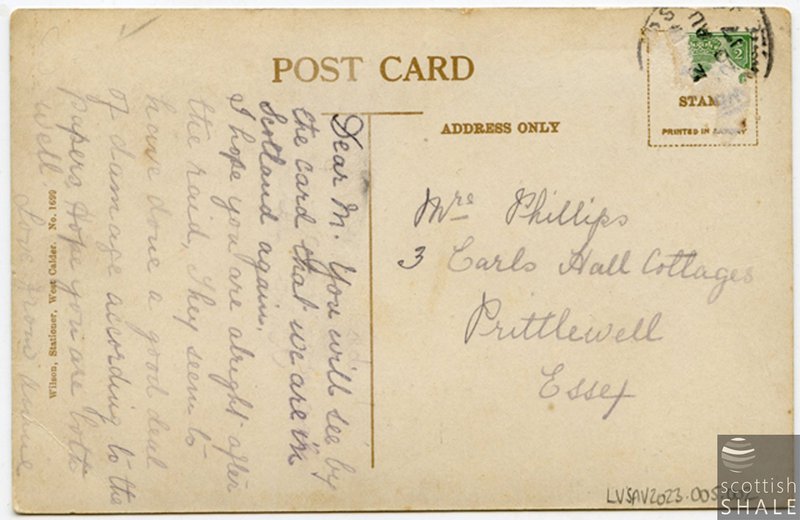 POST CARD
STAMP
PRINTED IN
ADDRESS ONLY
Dear M. You will see by
the card that we are in
Scotland again.
I hope you are alright after
the raid, They seem to
have done a good deal
of damage according to the
papers, Hope you are both
well.
Love from Annie
Mrs Phillips
3 Earls Hall Cottages
Prittlewell
Essex
Wilson, Stationer, West Calder. No. 1699
LVSAV2023.005
scottish
SHALE